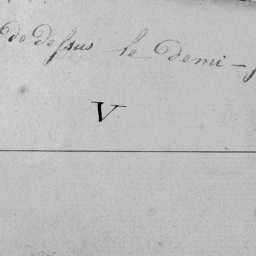 de deſsus le Demi-
V